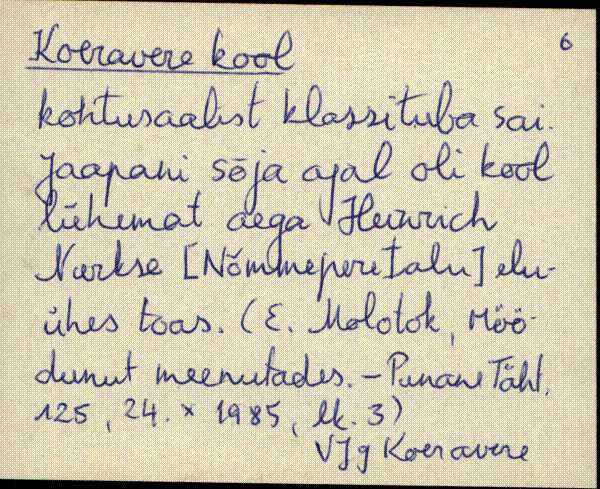 6
Koeravere kool
kohtusaalist klassituba sai.
Jaapani sõja ajal oli kool
lühemat aega Heinrich
Nurkse [Nõmmeperetalu] elu-
ühes toas. (E. Molotok, Möö-
dunut meenutades. – Punane Täht,
125, 24. x 1985, lk. 3)
VJg Koeravere